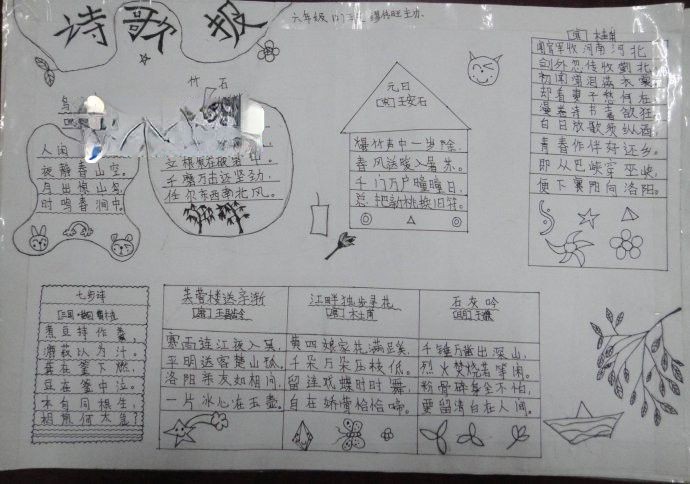 诗歌报
竹石
人闲
夜静春山空。
月出惊山鸟,
时鸣春涧中。
千磨万击还坚劲,
任尔东西南北风。
元日
[宋]王安石
爆竹声中一岁除,
春风送暖入屠苏。
千门万户曈曈日,
总把新桃换旧符。
闻官军收河南河北
剑外忽传收蓟北,
初闻涕泪满衣裳。
却看妻子愁何在,
漫卷诗书喜欲狂。
白日放歌须纵酒,
青春作伴好还乡。
即从巴峡穿巫峡,
便下襄阳向洛阳。
七步诗
煮豆持作羹,
漉菽以为汁。
萁在釜下燃,
豆在釜中泣。
本自同根生,
相煎何太急?
芙蓉楼送辛渐
[唐]王昌龄
寒雨连江夜入吴,
平明送客楚山孤。
洛阳亲友如相问,
一片冰心在玉壶。
江畔独步寻花
黄四娘家花满蹊,
千朵万朵压枝低。
留连戏蝶时时舞,
自在娇莺恰恰啼。
石灰吟
[明]于谦
千锤万凿出深山,
烈火焚烧若等闲。
粉骨碎身全不怕,
要留清白在人间。